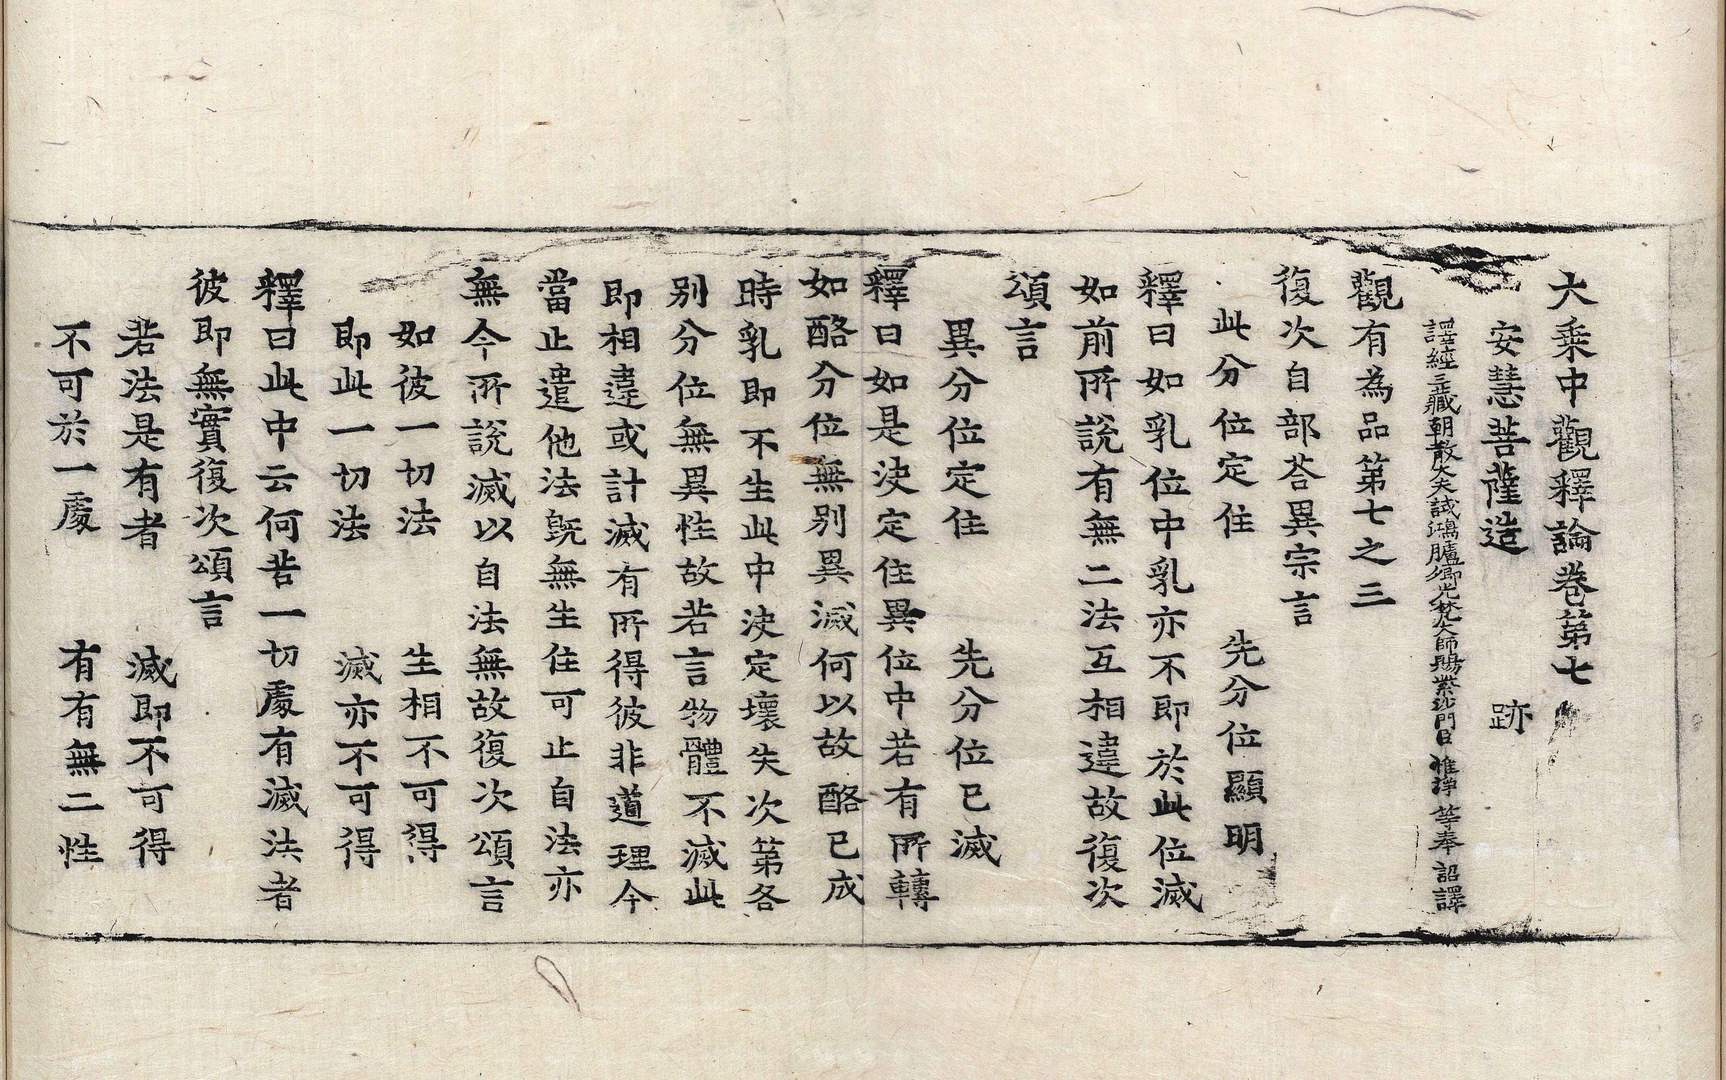 大乘中觀釋論卷第七
安慧菩薩造 跡
譯經三藏朝散大夫試鴻臚卿光梵大師賜紫沙門臣惟淨等奉詔譯
觀有為品第七之三
復次自部荅異宗言
此分位定住 先分位顯明
釋曰如乳位中乳亦不即於此位滅
如前所說有無二法互相違故復次
頌言
異分位定住 先分位已滅
釋曰如是決定住異位中若有所轉
如酪分位無別異滅何以故酪已成
時乳即不生此中決定壞失次第各
別分位無異性故若言物體不滅此
即相違或計滅有所得彼非道理今
當止遣他法旣無生住可止自法亦
無今所說滅以自法無故復次頌言
如彼一切法 生相不可得
即此一切法 滅亦不可得
釋曰此中云何若一切處有滅法者
彼即無實復次頌言
若法是有者 滅即不可得
不可於一處 有有無二性